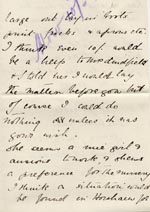 large out lay in boots
print frocks & aprons etc.
I think even 10/. would
be a help to Mrs Dudfield
& I told her I would lay
the matter before you but
of course I could do
nothing unless it was
your wish.
She seems a nice girl &
anxious to work, & shows
a preference for the nursery
I think a situation could
be found in Horsham for